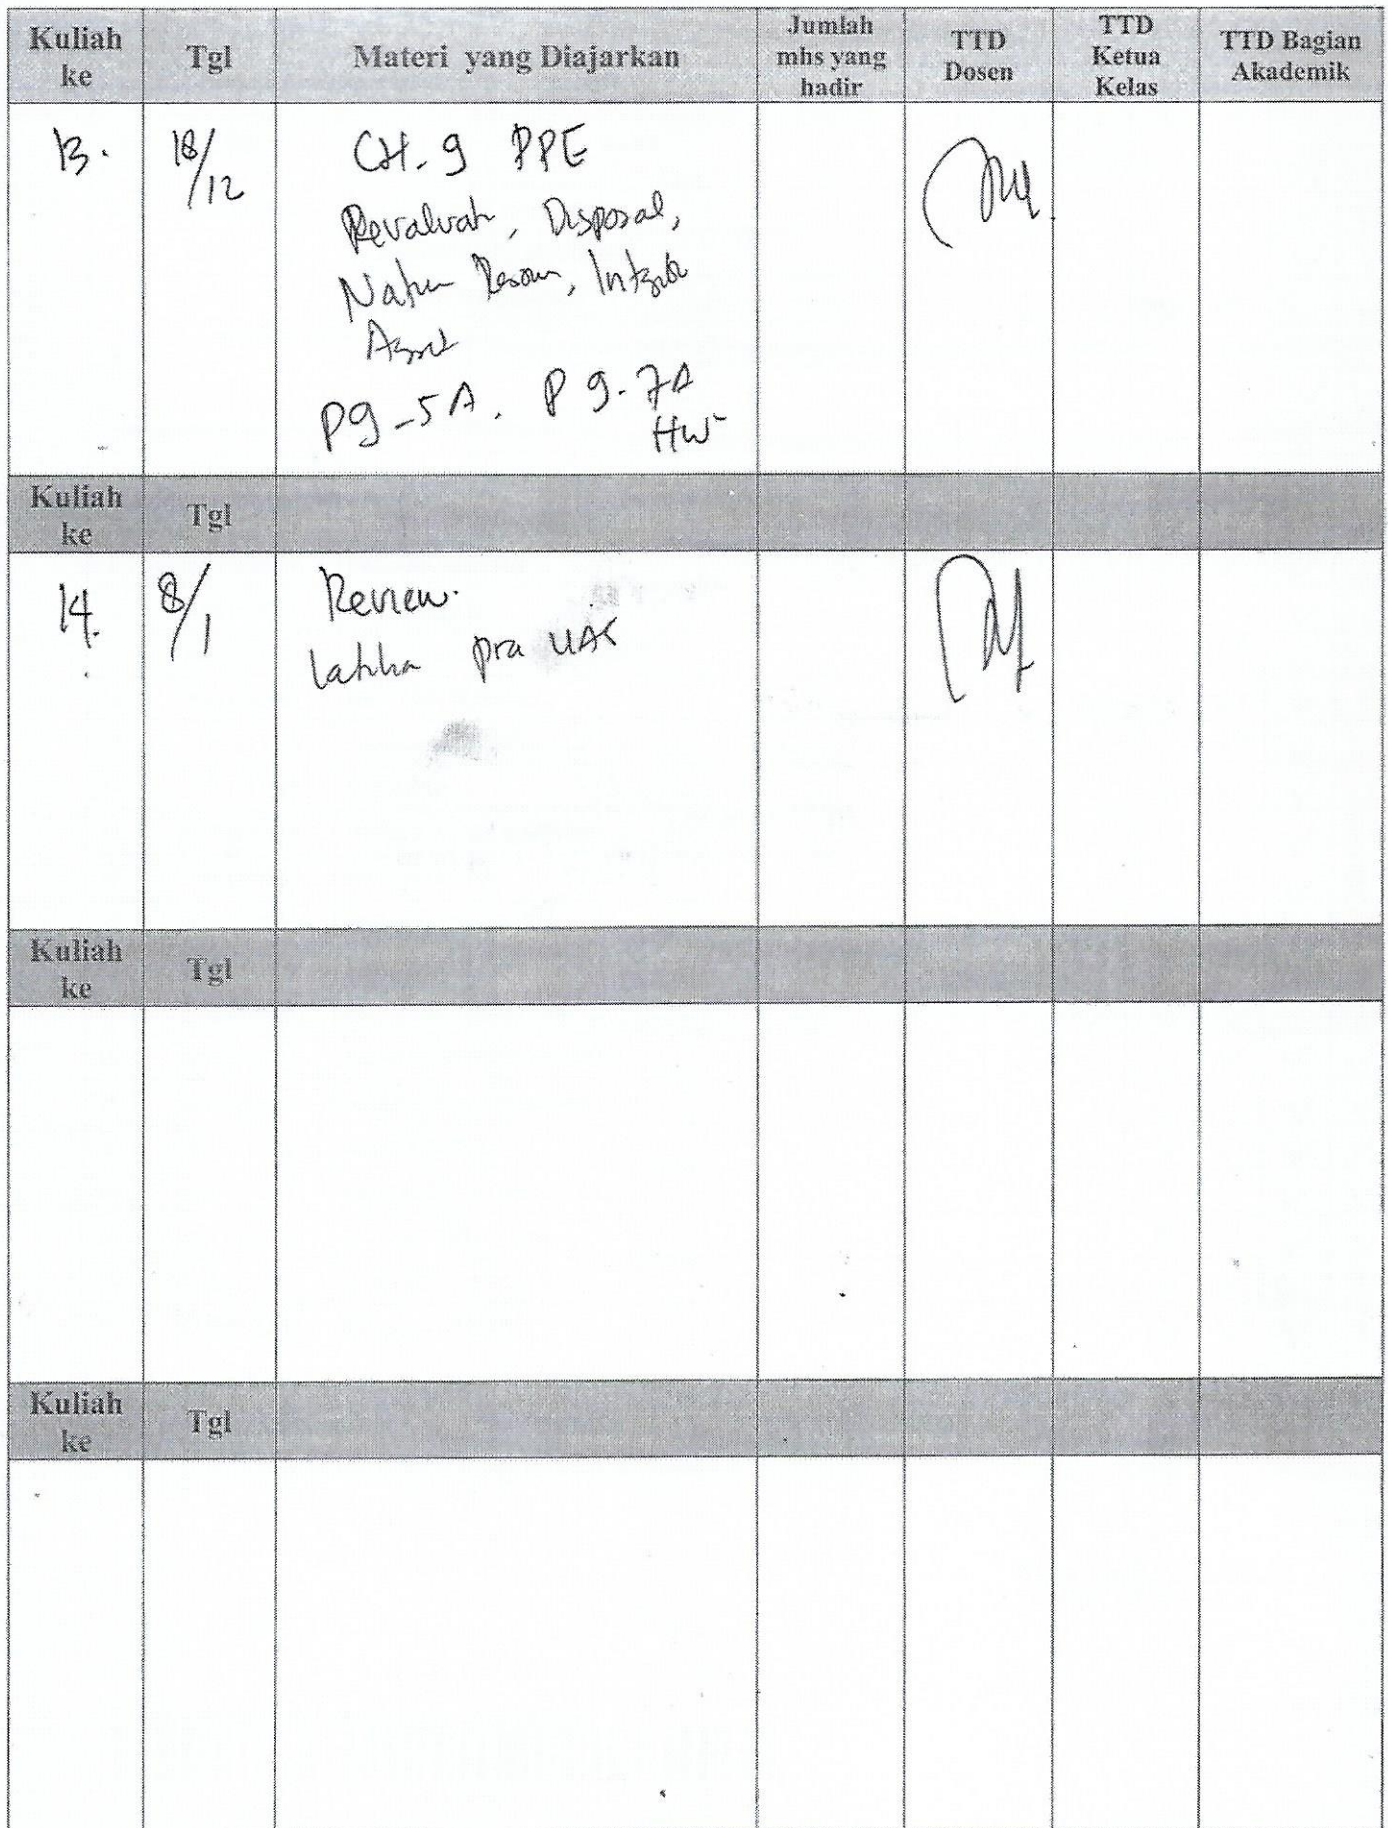 Kuliah ke Tgl Materi yang Diajarkan Jumlah mhs yang hadir TTD Dosen TTD Ketua Kelas TTD Bagian Akademik
13. 18/12 CH. 9 PPE
Disposal,
P9-5A. P9-7A
HW
Kuliah ke Tgl
14. 8/1 Review.
pra UAS
Kuliah ke Tgl
Kuliah ke Tgl